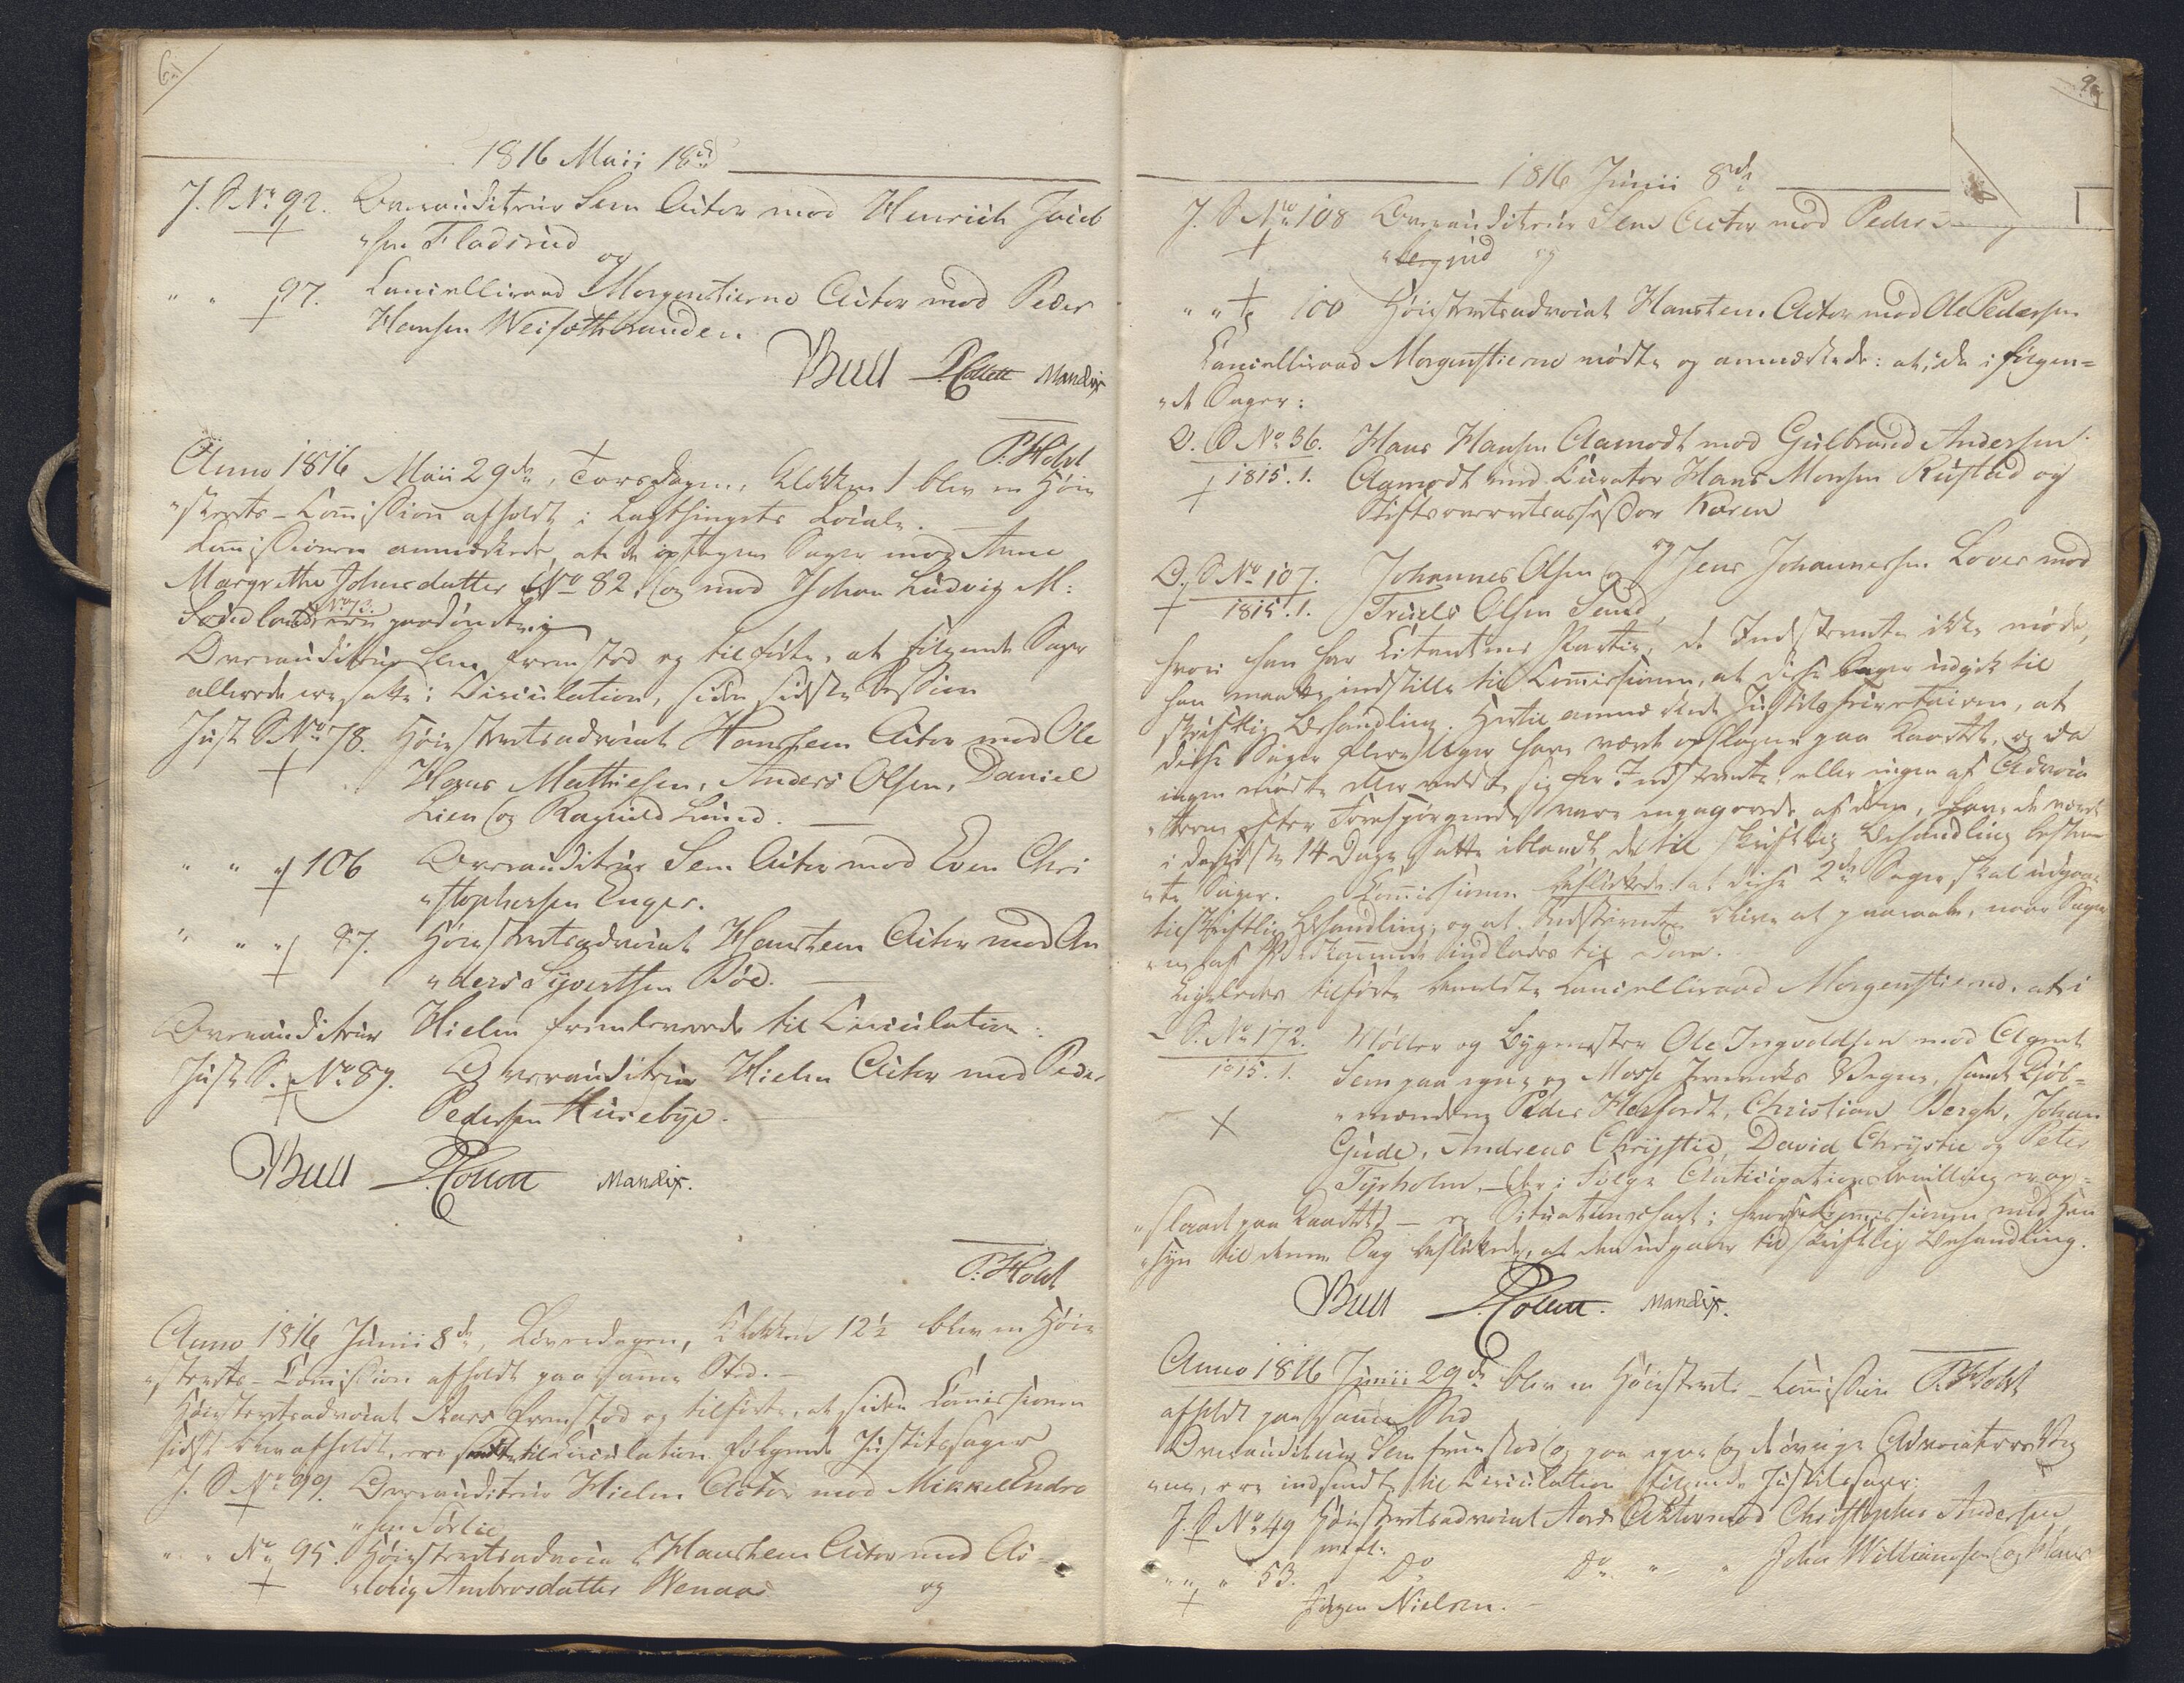 6
1816 Maii 18de
J. S. No 92. Overauditeur Sem Actor mod Henrich Jacob
"sen Fladsrud
og
" " 97. Cancelliraad Morgenstierne Actor mod Peder
Hansen Weisætbraaden.
Bull PCollett Mandix
P. Holst
Anno 1816 Maii 29de, Torsdagen, Klokken 1 blev en Høie
"sterets-Commission afholdt i Lagthingets Locale.
Commissionen anmærkede, at de optagne Sager mod Anne
Margrethe Johnsdatter No 82, og mod Johan Ludvig M:
No 73.
Overauditeur Sem fremstod og tilførte, at følgende Sager
allerede ere satte i Circulation, siden sidste Session
Just. S. No 78. Høiesteretsadvocat Hansteen Actor mod Ole
Hans Mathiesen, Anders Olsen, Daniel
Lien og Ragnild Lund.
" " " 106 Overauditeur Sem Actor mod Even Chri
"stophersen Enger.
" " " 97. Høiesteretsadvocat Hansteen Actor mod An
"ders Syvertsen Bøe.
Overauditeur Hielm fremleverede til Circulation:
Just. S. No 89. Overauditeur Hielm Actor mod Peder
Pedersen Huusebye.
Bull PCollett Mandix.
P. Holst
Anno 1816 Junii 8de, Løverdagen, Klokken 12½ blev en Høie
"sterets-Commission afholdt paa samme Sted.
Høiesteretsadvocat Aars fremstod og tilførte, at siden Commissionen
sidst blev afholdt, ere satte til Circulation følgende Justitssager
J. S. No 99. Overauditeur Hielm Actor mod Mikkel Endre
"sen Sørlie
" " No 95. Høiesteretsadvocat Hansteen Actor mod As-
"loug Ambrosdatter Wenaas og
9
1816 Junii 8de
J. S. No 108 Overauditeur Sem Actor mod Peder
og
" " 100 Høiesteretsadvocat Hansteen Actor mod Ole Pedersen
Cancelliraad Morgenstierne mødte og anmærkede: at, da i følgen=
"de Sager:
O. S. No 36. Hans Hansen Aamodt mod Gulbrand Andersen
1815. 1. Aamodt med Curator Hans Monsen Rustad og
Stiftsoverretsassessor Koren
og
O. S. No 107. Johannes Olsen og Jens Johannesen Lover mod
1815. 1. Truels Olsen Sund,
hvori han har Citantens Partie, de Indstevnte ikke møde,
han maatte indstille til Commissionen, at disse Sager udgik til
skriftlig Behandling. Hertil anmærkede Justitssecretairen, at
disse Sager flere Uger have været opslagne paa Kaartet, og da
ingen mødte eller meldte sig for Indstevnte, eller ingen af Advoca
"terne efter Forespørgende vare engagerede af dem, have de været
i de sidste 14 Dage satte iblandt de til skriftlig Behandling bestem
"te Sager. Commissionen besluttede: at disse 2de Sager skal udgaae
til skriftlig Behandling, og at Indstevnte bliver at paaraabe, naar Sager
Ligeledes tilførte bemeldte Cancelliraad Morgenstierne, at i
- S. No 172. Møller og Bygmester Ole Ingvoldsen mod Agent
1815. 1. Sem paa egne og Mosse Jernverks Vegne, samt Kjøb=
"mændene Peder Herfordt, Christian Bergh, Johan
Gude, Andreas Chrystie, David Chrystie og Peter
Tyrholm, – der i Følge Anticipationsbevilling er op=
"slaaet paa Kaartet – er Situationschart; hvorfor Commissionen med Hen
"syn til denne Sag besluttede, at den udgaaer til skriftlig Behandling.
Bull PCollett. Mandix.
P. Holst
Anno 1816 Junii 29de blev en Høiesterets-Commission
afholdt paa samme Sted
Overauditeur Sem fremstod og paa egne og de øvrige Advocaters Veg
"ne, ere indsendte til Circulation følgende Justitssager:
J. S. No 49 Høiesteretsadvocat Aars Actor mod Christopher Andersen
" " " 53. Do Do " " John Williamsen og Klaus
Jørgen Nielsen.